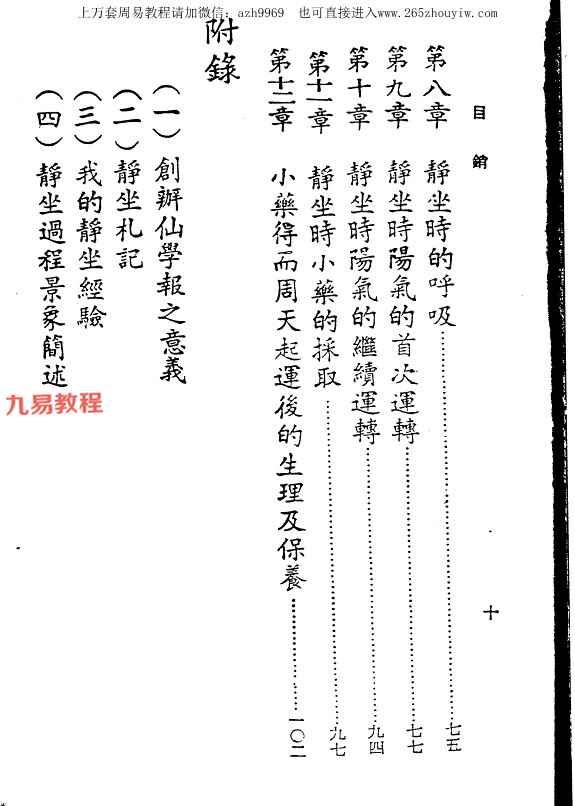 上万套周易教程请加微信：azh9969　也可直接进入www.265zhouyiw.com
目　錄
第八章　靜坐時的呼吸……七五
第九章　靜坐時陽氣的首次運轉……七七
第十章　靜坐時陽氣的繼續運轉……九四
第十一章　靜坐時小藥的採取……九七
第十二章　小藥得而周天起運後的生理及保養……一〇二
附錄
（一）創辦仙學報之意義
（二）靜坐札記
（三）我的靜坐經驗
（四）靜坐過程景象簡述
十
九易教程